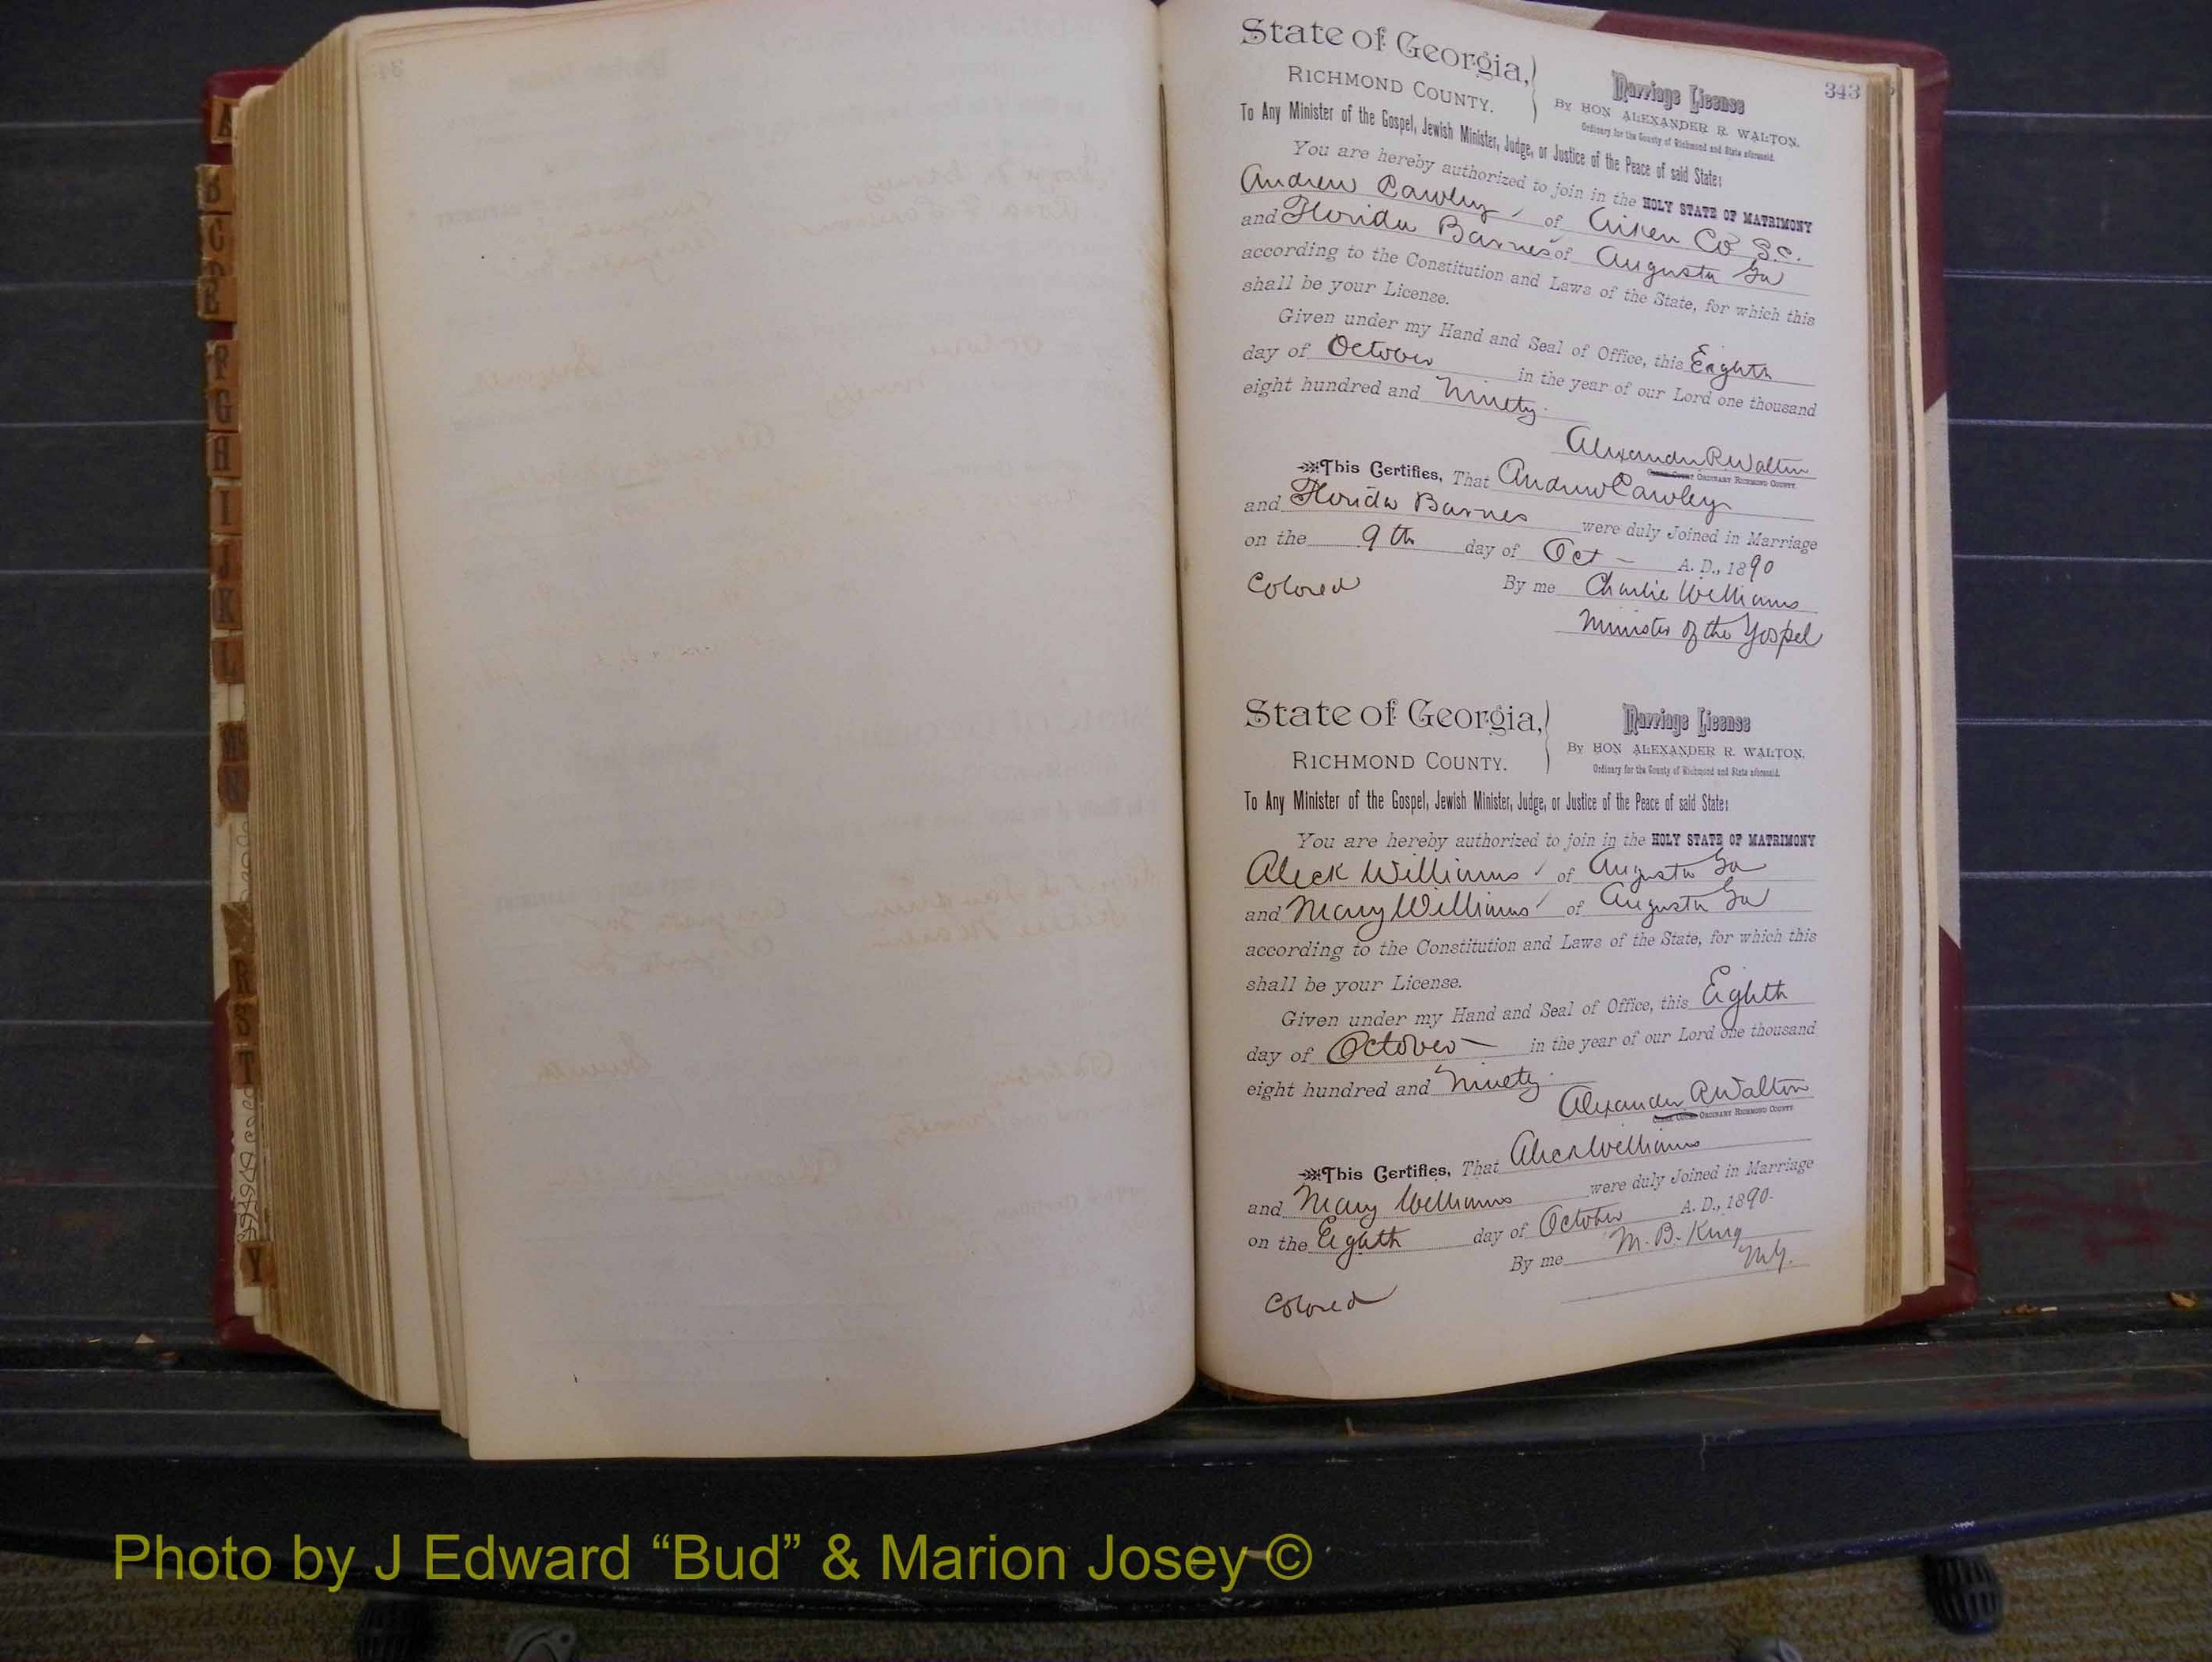 A
B
C
D
E
F
G
H
I
J
K
L
M
N
R
S
T
Y
343
State of Georgia,
RICHMOND COUNTY.
Marriage License
BY HON ALEXANDER R. WALTON.
Ordinary for the County of Richmond and State aforesaid.
To Any Minister of the Gospel, Jewish Minister, Judge, or Justice of the Peace of said State:
You are hereby authorized to join in the HOLY STATE OF MATRIMONY
Andrew Cawley of Aiken Co S.C.
and Florida Barnes of Augusta Ga
according to the Constitution and Laws of the State, for which this
shall be your License.
Given under my Hand and Seal of Office, this Eighth
day of October in the year of our Lord one thousand
eight hundred and Ninety.
Alexander R Walton
ORDINARY RICHMOND COUNTY.
This Certifies, That Andrew Cawley
and Florida Barnes were duly Joined in Marriage
on the 9th day of Oct A. D., 1890
Colored By me Charlie Williams
Minister of the Gospel
State of Georgia,
RICHMOND COUNTY.
Marriage License
By HON ALEXANDER R. WALTON.
Ordinary for the County of Richmond and State aforesaid.
To Any Minister of the Gospel, Jewish Minister, Judge, or Justice of the Peace of said State:
You are hereby authorized to join in the HOLY STATE OF MATRIMONY
Aleck Williams of Augusta Ga
and Mary Williams of Augusta Ga
according to the Constitution and Laws of the State, for which this
shall be your License.
Given under my Hand and Seal of Office, this Eighth
day of October in the year of our Lord one thousand
eight hundred and Ninety.
Alexander R Walton
ORDINARY RICHMOND COUNTY
This Certifies, That Aleck Williams
and Mary Williams were duly Joined in Marriage
on the Eighth day of October A. D., 1890.
By me M. B. King
M.G.
Colored
Photo by J Edward “Bud” & Marion Josey ©